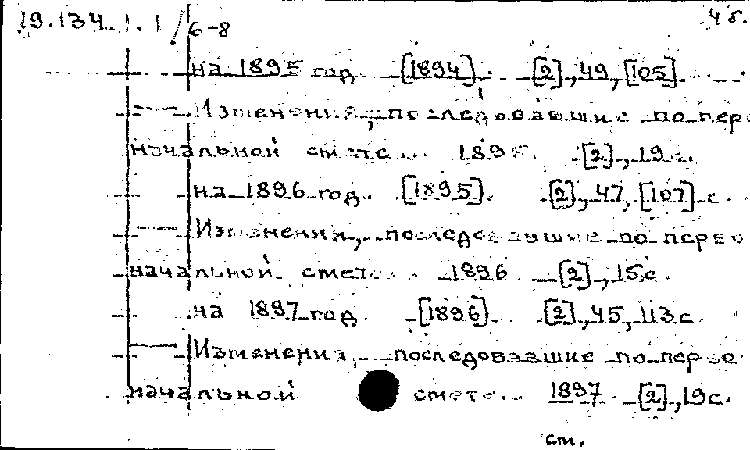 19.134.1.1/6-8 4б.
на 1895 год [1894]. [2],49,[105].
Изменения, последовавшие по перво
начальной смете. 1895. [2],19с.
на 1896 год. [1895]. [2],47,[107]с.
Изменения, последовавшие по перво
начальной смете. 1896 [2],15с.
на 1897 год [1896]. [2],45,113с.
Изменения, последовавшие по перво
начальной смете. 1897. [2],19с.
см.